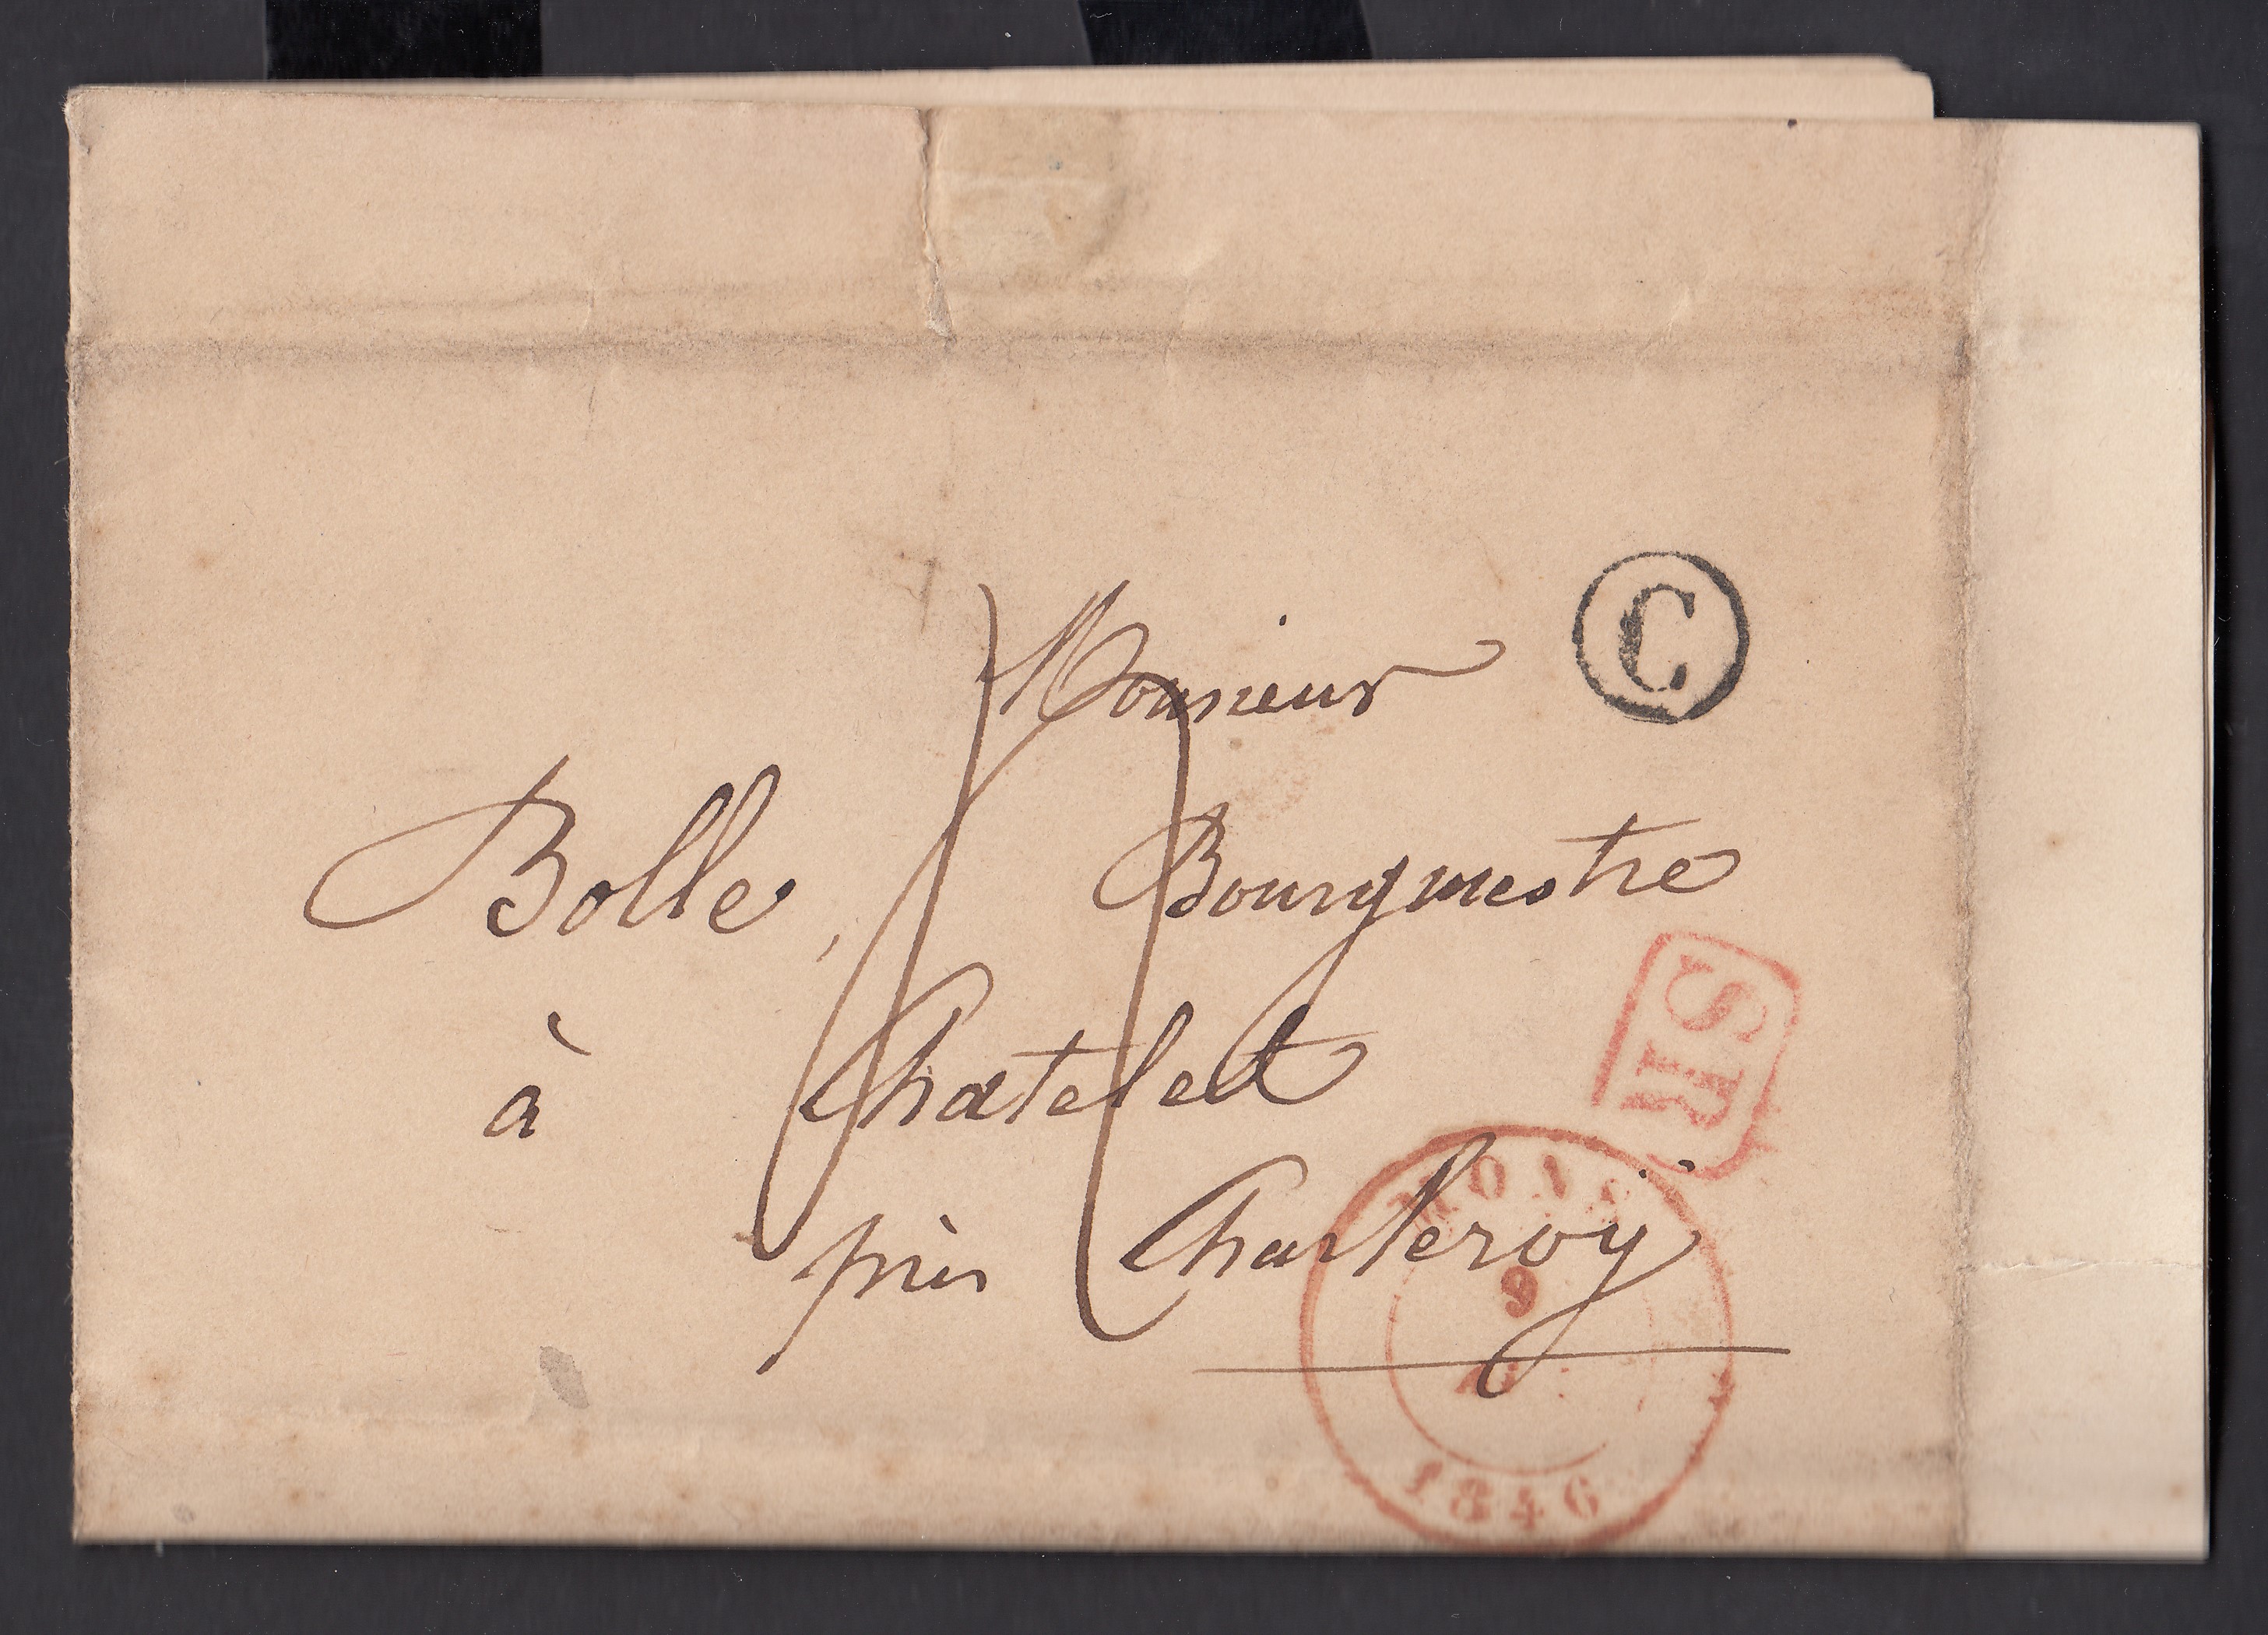 Monsieur
C
Bolle, Bourgmestre
à Chatelet
près Charleroÿ
SR
MONS
9
1846